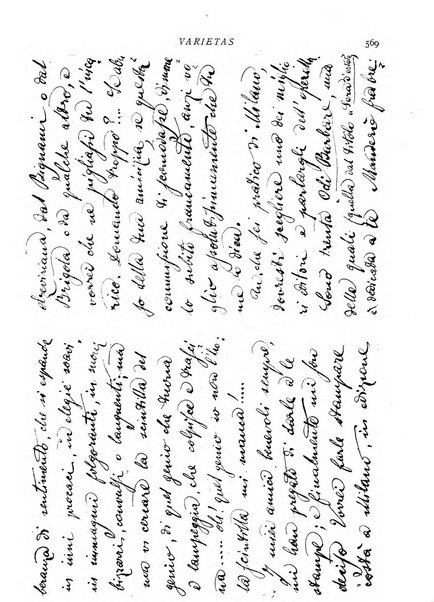 VARIETAS
569
beranza di sentimento, che si espande
in inni procaci, in elegie soavi
in immagini folgoranti, in suoni
bizzarri, convulsi o languenti; ma
non vi cercare la scintilla del
genio, di quel genio che tuona
e lampeggia, che colpisce e trasci
na ..... oh! quel genio io non l'ho:
la scintilla mi manca!.....
I miei amici benevoli sempre,
mi han pregato di darle a le
stampe; e finalmente mi son
deciso. Vorrei farle stampare
costà a Milano, in edizione
elzeviriana, dal Bignami o dal
Brigola o da qualche altro, e
vorrei che ne pigliassi tu l'inca
rico. Domando troppo?... Se abu
so della tua amicizia, se questa
commissione ti scomodasse, dimme
lo subito francamente, anzi vo
glio assolutissimamente che tu
me lo dica.
Tu, che sei pratico di Milano,
dovresti scegliere uno dei miglio
ri editori e parlargli dell'operetta
Sono trenta Odi Barbare, una
delle quali (quella dal titolo:
è dedicata a te. Manderò fra bre